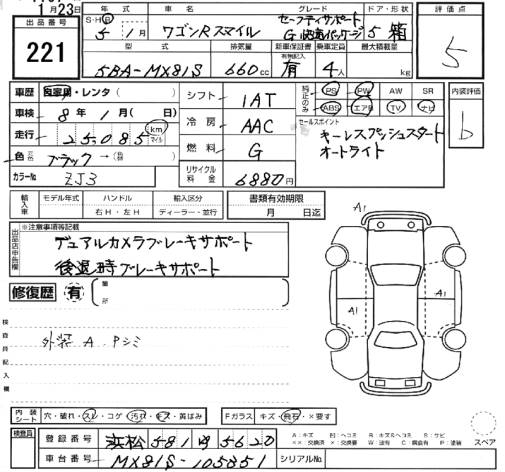 1月23日
出品番号
221
年式
S・H・R
5年1月
車名
ワゴンRスマイル
グレード
セーフティサポート
G 快適パッケージ
ドア・形状
5 箱
評価点
5
型式
5BA-MX81S
排気量
660cc
新車保証書
有
乗車定員
4人
最大積載量
kg
車歴
自家用・レンタ( )
車検
8年1月( 日)
走行
25,085
km
マイル
色
ブラック →
カラーNo
ZJ3
シフト
1AT
冷房
AAC
燃料
G
リサイクル料金
6880円
純正のみ
PS PW AW SR
ABS エアB TV ナビ
セールスポイント
キーレスプッシュスタート
オートライト
内装評価
b
輸入車
モデル年式
ハンドル
右H・左H
輸入区分
ディーラー・並行
書類有効期限
月 日迄
出品店申告欄
※注意事項等記載
デュアルカメラブレーキサポート
後退時ブレーキサポート
修復歴 有
箇所
検査員記入欄
外装 A Pシミ
A1
A1
A1
内装シート
穴・破れ・スレ・コゲ 汚れ・キズ・黄ばみ
Fガラス キズ・飛石・×要す
スペア
検査員
登録番号
浜松 581 す 5620
車台番号
MX81S-105851
シリアルNo.